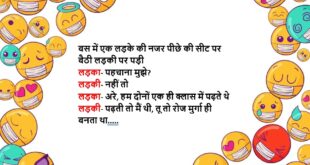 बस में एक लड़के की नजर पीछे की सीट पर
बैठी लड़की पर पड़ी
लड़का- पहचाना मुझे?
लड़की- नहीं तो
लड़का- अरे, हम दोनों एक ही क्लास में पढ़ते थे
लड़की- पढ़ती तो मैं थी, तू तो रोज मुर्गा ही
बनता था.....